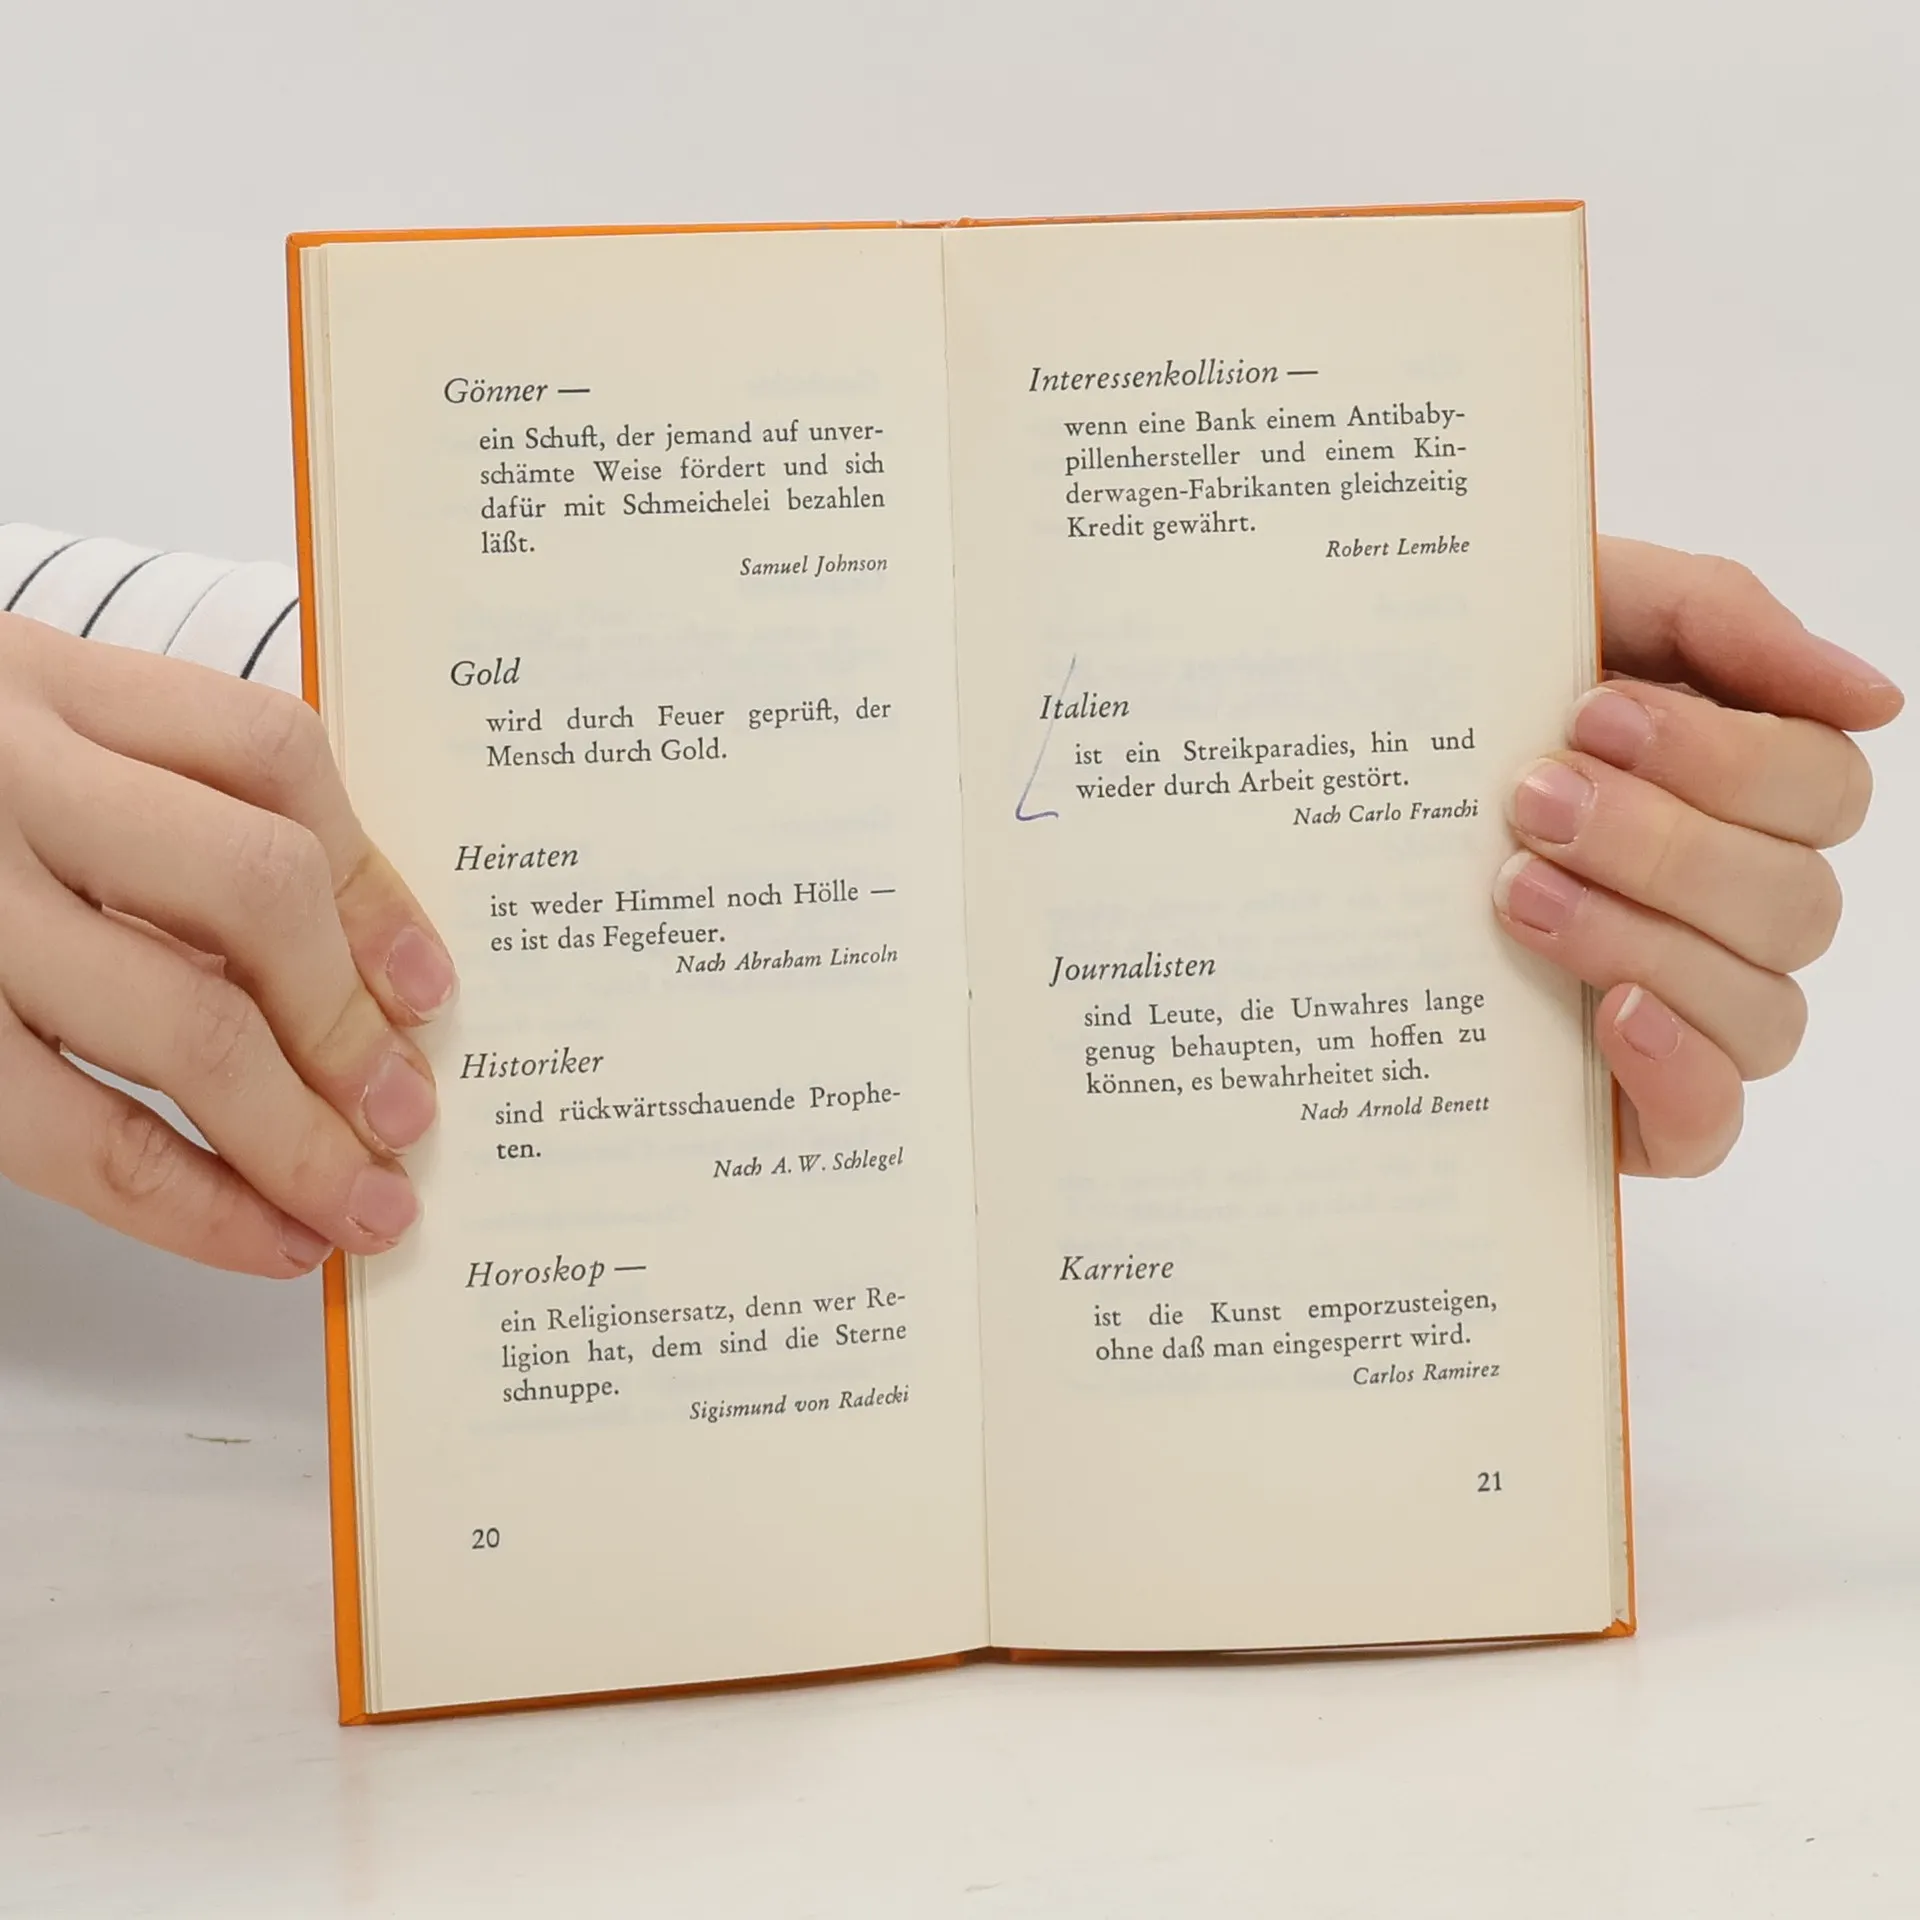 Gönner —
ein Schuft, der jemand auf unver-
schämte Weise fördert und sich
dafür mit Schmeichelei bezahlen
läßt.
Samuel Johnson
Gold
wird durch Feuer geprüft, der
Mensch durch Gold.
Heiraten
ist weder Himmel noch Hölle —
es ist das Fegefeuer.
Nach Abraham Lincoln
Historiker
sind rückwärtsschauende Prophe-
ten.
Nach A. W. Schlegel
Horoskop —
ein Religionsersatz, denn wer Re-
ligion hat, dem sind die Sterne
schnuppe.
Sigismund von Radecki
20
Interessenkollision —
wenn eine Bank einem Antibaby-
pillenhersteller und einem Kin-
derwagen-Fabrikanten gleichzeitig
Kredit gewährt.
Robert Lembke
Italien
ist ein Streikparadies, hin und
wieder durch Arbeit gestört.
Nach Carlo Franchi
Journalisten
sind Leute, die Unwahres lange
genug behaupten, um hoffen zu
können, es bewahrheitet sich.
Nach Arnold Benett
Karriere
ist die Kunst emporzusteigen,
ohne daß man eingesperrt wird.
Carlos Ramirez
21